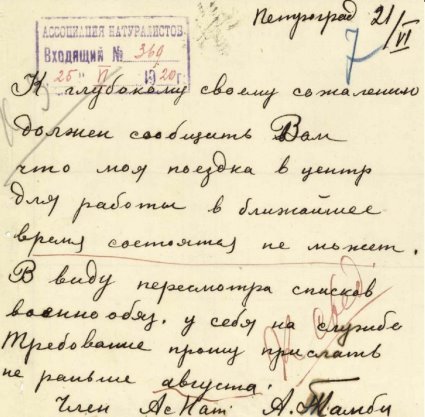 Петроград 21/VI
АССОЦИАЦИЯ НАТУРАЛИСТОВ
Входящий № 369
"25" VI 1920 г.
7
К глубокому своему сожалению
должен сообщить Вам
что моя поездка в центр
для работы в ближайшее
время состоятся не может.
В виду пересмотра списков
военнообяз. у себя на службе
требование прошу прислать
не раньше августа.
Член АсНат: А. Тамби